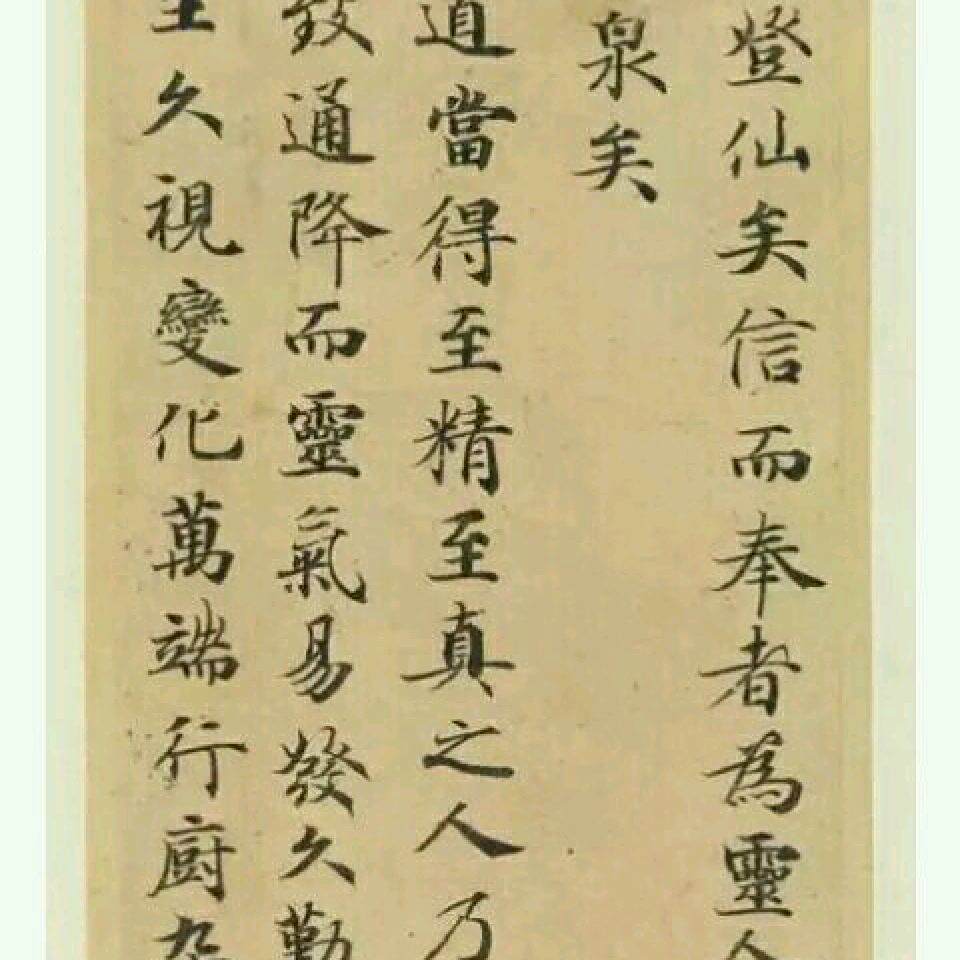 登仙矣信而奉者為靈人
泉矣
道當得至精至真之人乃
致通降而靈氣易發久勤
久視變化萬端行厨